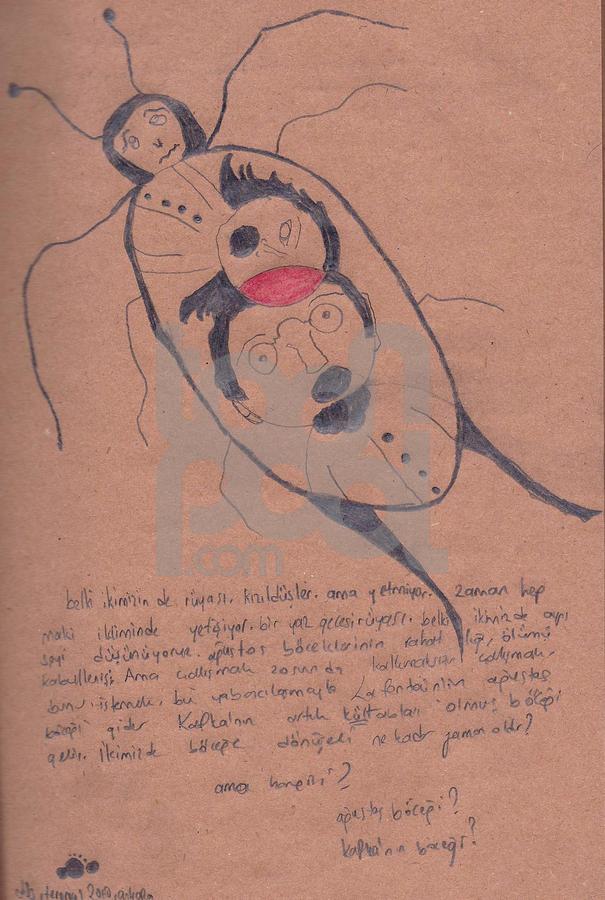 belki ikimizin de rüyası. kızıldüşler. ama yetmiyor. zaman hep
maki ikliminde yetişiyor. bir yaz gecesi rüyası. belki ikimizde aynı
şeyi düşünüyoruz. ağustos böceklerinin rahat ölümü
kabullenişi. Ama çalışmak zorunda çalışmak.
bunu istemek, bu yabancılaşmayla La fontain'in ağustos
böceği gider Kafka'nın artık olmuş böceği
gelir. İkimizde böceğe dönüşeli ne kadar zaman oldu?
ama hangisi?
ağustos böceği?
kafka'nın böceği?
pa
.com